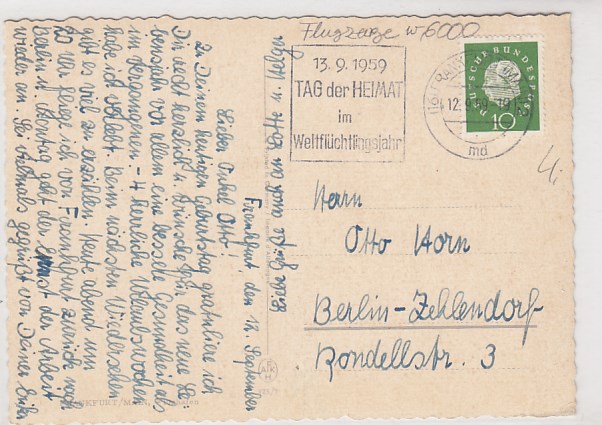 Flugzeuge w 6000
13.9.1959
TAG der HEIMAT
im
Weltflüchtlingsjahr
DEUTSCHE BUNDESPOST
10
md
Herrn
Otto Horn
Berlin-Zehlendorf
Rondellstr. 3
Frankfurt den 12. September
Lieber Onkel Otto!
Zu Deinem heutigen Geburtstag gratuliere ich
Dir recht herzlich u. wünsche für das neue Le-
bensjahr vor allem eine bessere Gesundheit als
im vergangenen. - 4 herrliche Urlaubswochen
habe ich verlebt. Beim nächsten Wiedersehen
gibt es viel zu erzählen. Heute abend um
20 Uhr fliege ich von Frankfurt zurück nach
Berlin u. Montag geht der Ernst der Arbeit
wieder an. Sei vielmals gegrüßt von Deiner
Bitte auch an
FRANKFURT/MAIN